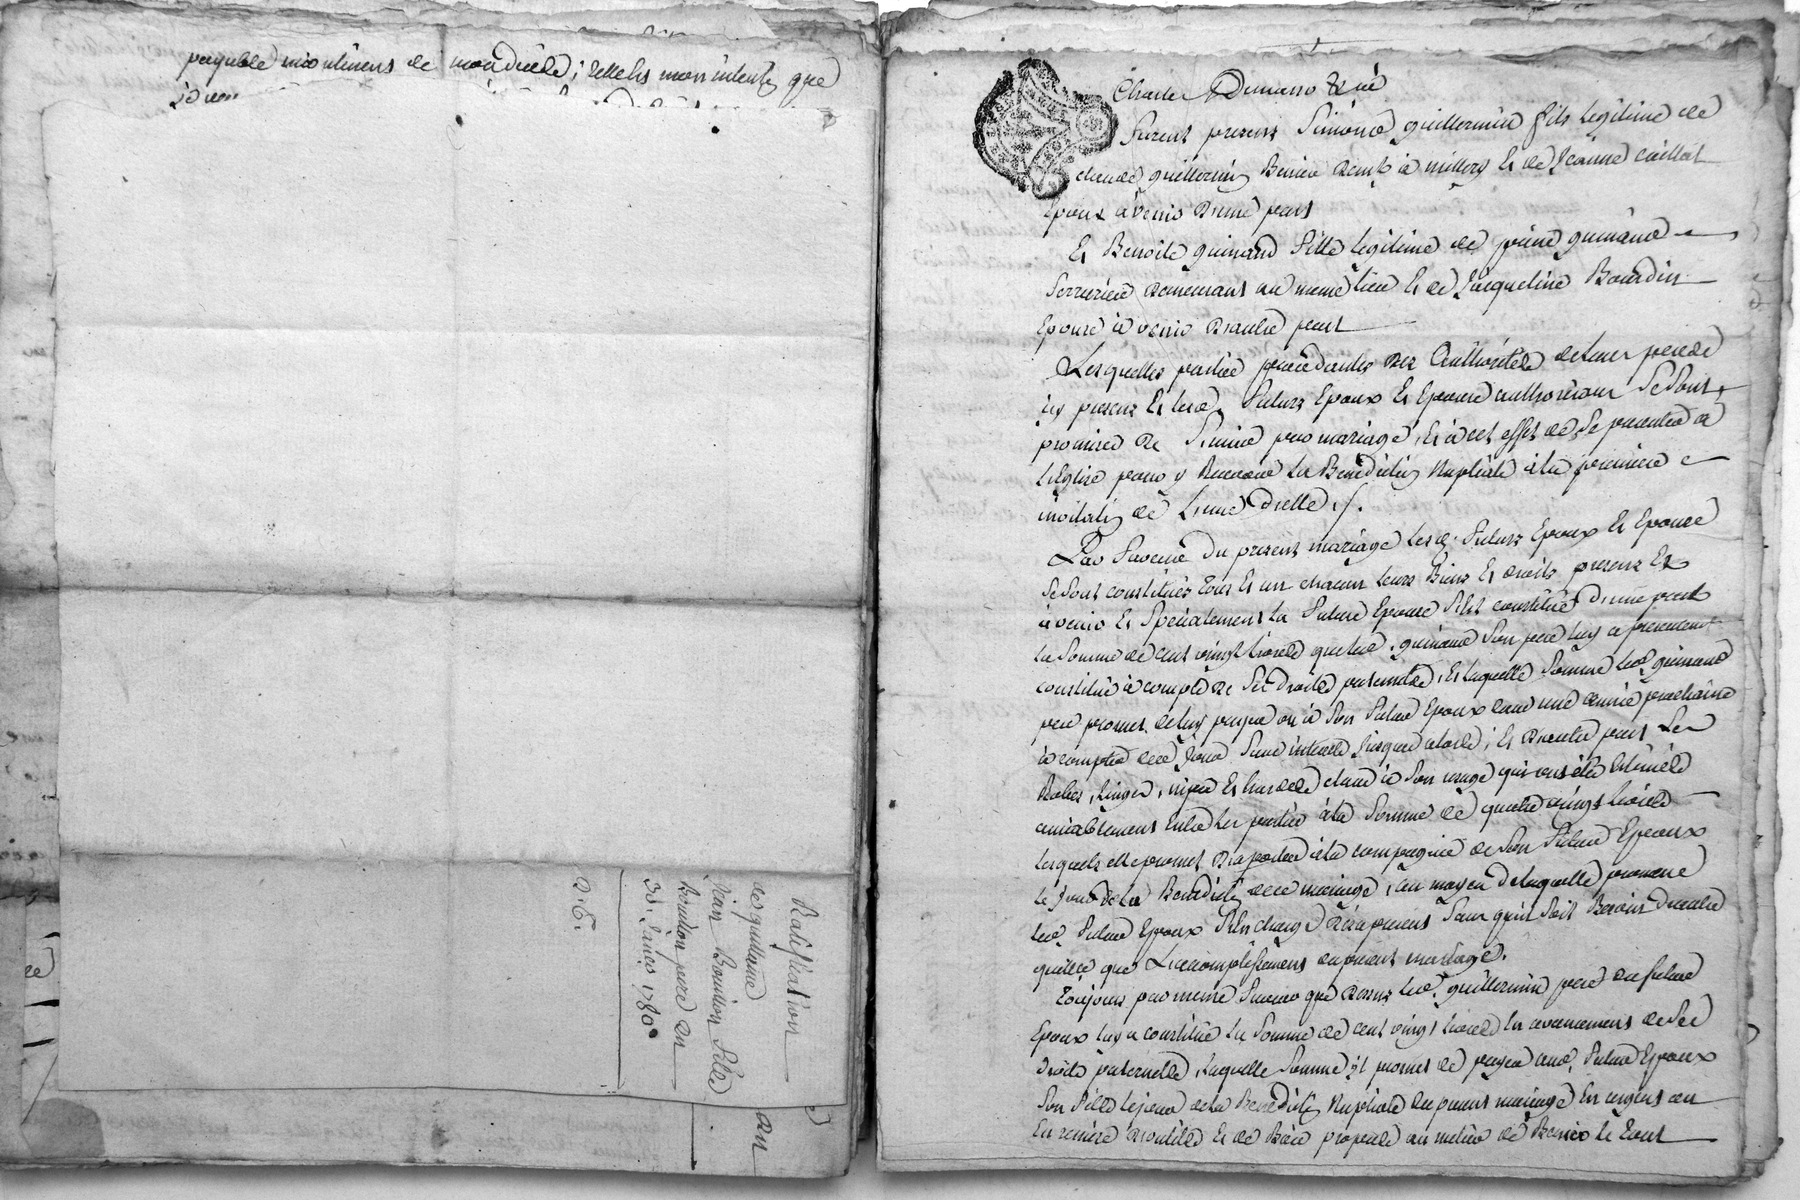 payable incontinens de mon deces ; telle est mon intent que
furent presens Simond guillermin fils legitime de
claude guillermin demt a millery Et de Jeanne
Epoux avenir d'une part
Et Benoite guinand fille legitime de pierre guinand
serrurier demeurant au meme lieu Et de Jacqueline Bourdin
Epouse a venir d'autre part
Lesquelles parties procedantes des authorités de leur pere de
presens Et les d. futurs Epoux Et Epouse authorisant se sont
promises de s'unir par mariage, Et a cet effet de se presenter a
l'Eglise pour y Recevoir La Benediction Nuptiale a la premiere
invitation de L'une d'elle
En faveur du present mariage les d. futurs Epoux Et Epouse
se sont constitués tous Et un chacun leurs Biens Et droits presens Et
avenir Et specialement la future Epouse s'est constitué d'une part
la somme de cent vingt livres que led. guinand son pere luy a presentement
constitué a compte de ses droits paternels, Et laquelle somme led. guinand
pere promet de luy payer ou a son futur Epoux dans une année prochaine
a compter de ce jour sans interet jusques alors ; Et d'autre part les
Robes, Linges, nipes Et hardes a son usage qui ont été estimés
amiablement entre les parties a la somme de quatre vingt livres
lesquels elle promet d'aporter a la compagnie de son futur Epoux
le jour de la Benediction de ce mariage, au moyen de laquelle promesse
led. futur Epoux s'en charge des a present sans qu'il soit Besoin d'autre
quittance que L'accomplissement du present mariage.
Toujours par meme faveur que dessus led. guillermin pere du futur
Epoux luy a constitué la somme de cent vingt livres En avancement de ses
droits paternels, laquelle somme il promet de payer aud. futur Epoux
son fils le jour de la Benediction Nuptiale du present mariage En argent ou
En d'outils Et de Bois propres au metier de le tout
Ratification
de guillaume
Jean Bouillon fils
Bouillon pere du
30. Janer 1780
D. E.
du